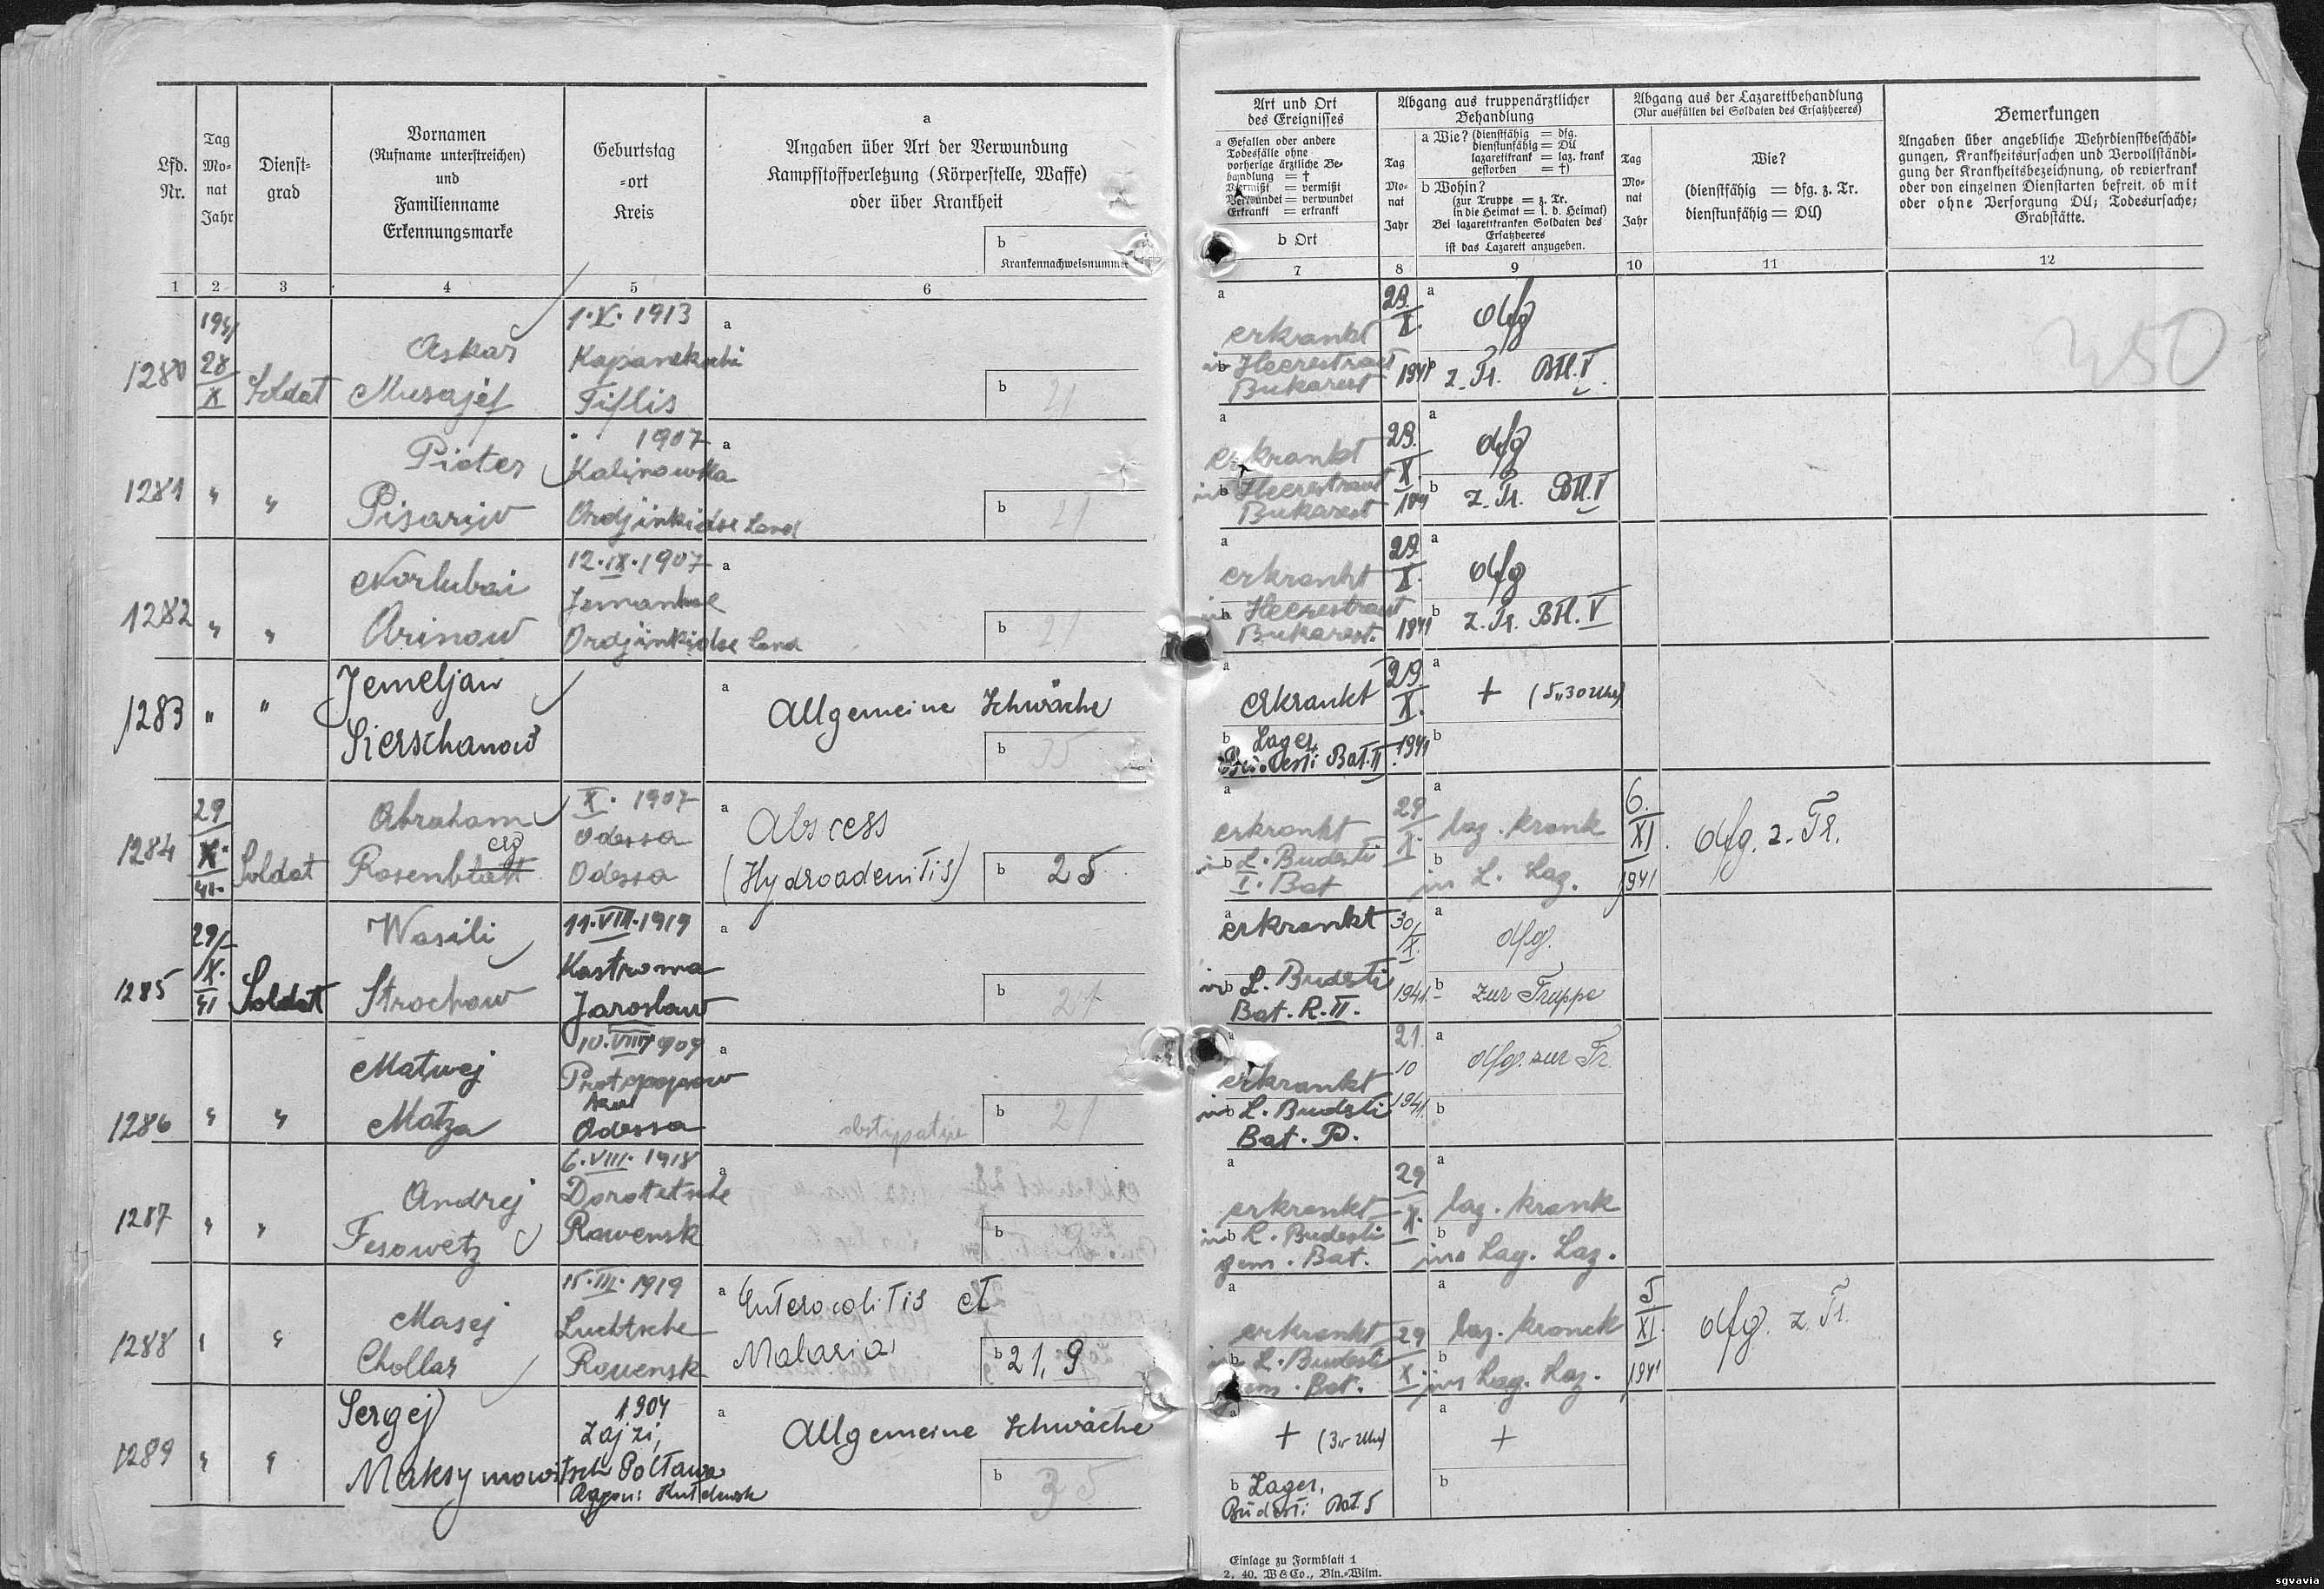 Lfd.
Nr.
Tag
Mo-
nat
Jahr
Dienst-
grad
Vornamen
(Rufname unterstreichen)
und
Familienname
Erkennungsmarke
Geburtstag
-ort
Kreis
a
Angaben über Art der Verwundung
Kampfstoffverletzung (Körperstelle, Waffe)
oder über Krankheit
b
Krankennachweisnummer
1 2 3 4 5 6
1280
1941
28
X
Soldat
Askar
Musajef
1.V. 1913
Tiflis
a
b 21
1281 " "
Pioter
Pisarijw
1907
Kalinowka
Ordjinkidse Land
a
b 21
1282 " "
Norlubai
Arinow
12.IX.1907
Ordjinkidse Land
a
b 21
1283 " "
Jemeljan
Sierschanow
a
Allgemeine Schwäche
b 35
1284
29
X.
41.
Soldat
Abraham
Rosenblatt
erg
X. 1907
Odessa
Odessa
a
Abscess
(Hydroadenitis)
b 25
1285
29
X.
41
Soldat
Wasili
Strochow
11.VIII.1919
Kastroma
Jaroslaw
a
b 21
1286 " "
Matwej
Matza
10.VIII 1909
Odessa
a
b 21
1287 " "
Andrej
Fesowetz
6.VIII. 1918
Rowensk
a
b
1288 " "
Masej
Chollar
15.III. 1919
Luchtsche
Rowensk
a
Enterocolitis et
Malaria
b 21, 9
1289 " "
Sergej
Maksymowitsch
1904
Zajzi,
Poltawa
a
Allgemeine Schwäche
b 35
Art und Ort
des Ereignisses
a Gefallen oder andere
Todesfälle ohne
vorherige ärztliche Be-
handlung = †
Vermißt = vermißt
Verwundet = verwundet
Erkrankt = erkrankt
b Ort
Abgang aus truppenärztlicher
Behandlung
Tag
Mo-
nat
Jahr
a Wie? (dienstfähig = dfg.
dienstunfähig = DU
lazarettkrank = laz. krank
gestorben = †)
b Wohin?
(zur Truppe = z. Tr.
in die Heimat = i. d. Heimat)
Bei lazarettkranken Soldaten des
Ersatzheeres
ist das Lazarett anzugeben.
Abgang aus der Lazarettbehandlung
(Nur ausfüllen bei Soldaten des Ersatzheeres)
Tag
Mo-
nat
Jahr
Wie?
(dienstfähig = dfg. z. Tr.
dienstunfähig = DU)
Bemerkungen
Angaben über angebliche Wehrdienstbeschädi-
gungen, Krankheitsursachen und Vervollständi-
gung der Krankheitsbezeichnung, ob revierkrank
oder von einzelnen Dienstarten befreit, ob mit
oder ohne Versorgung DU; Todesursache;
Grabstätte.
7 8 9 10 11 12
a
erkrankt
b
Bukarest
29.
X.
1941
a dfg
b z. Tr. Btl. V
350
a
erkrankt
b
Bukarest
29.
X
1941
a dfg
b z. Tr. Btl. V
a
erkrankt
b
Bukarest.
29
X.
1941
a dfg
b z. Tr. Btl. V
a
erkrankt
b Lager
Budesti Bat. II
29
X.
1941
a + (5,30 Uhr)
b
a
erkrankt
in b L. Budesti
I. Bat
29
X.
a laz. krank
b in L. Laz.
6.
XI.
1941
dfg. z. Tr.
a
erkrankt
in b L. Budesti
Bat. R. II.
30
X.
1941.
a dfg.
b zur Truppe
a
erkrankt
in b L. Budesti
Bat. P.
21.
10
1941.
a dfg. zur Tr.
b
a
erkrankt
in b L. Budesti
gem. Bat.
29
X.
a laz. krank
b ins Lag. Laz.
a
erkrankt
in b L. Budesti
gem. Bat.
29
X.
a laz. kranck
b ins Lag. Laz.
5
XI.
1941
dfg. z. Tr.
a
+ (3,- Uhr)
b Lager,
Budesti Bat. 5
a +
b
Einlage zu Formblatt 1
2. 40. W & Co., Bln.-Wilm.
sgvavia